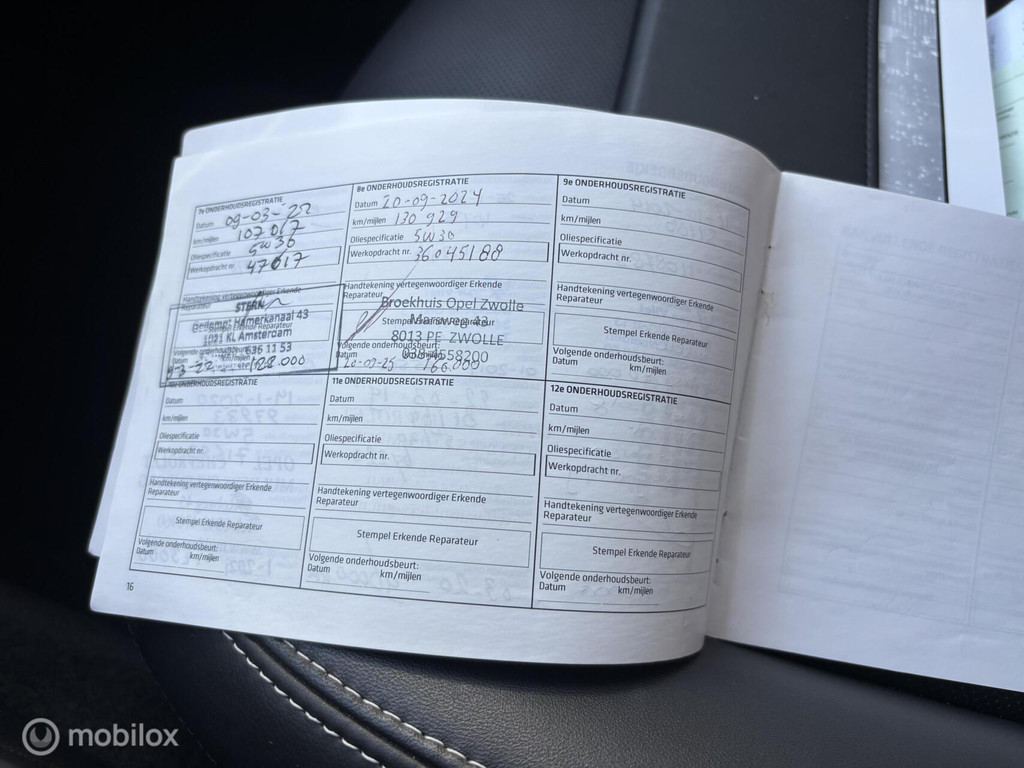 7e ONDERHOUDSREGISTRATIE
Datum 09-03-22
km/mijlen 107017
Oliespecificatie 5W30
Werkopdracht nr. 47617
Handtekening vertegenwoordiger Erkende
Reparateur
STERN
Gedempt Hamerkanaal 43
1021 KL Amsterdam
636 11 53
Volgende onderhoudsbeurt:
Datum km/mijlen
128.000
8e ONDERHOUDSREGISTRATIE
Datum 20-09-2024
km/mijlen 130 929
Oliespecificatie 5W30
Werkopdracht nr. 36045188
Handtekening vertegenwoordiger Erkende
Reparateur
Stempel Erkende Reparateur
Broekhuis Opel Zwolle
Marsweg 43
8013 PE ZWOLLE
038-4558200
Volgende onderhoudsbeurt:
Datum km/mijlen
20-09-25 160.000
9e ONDERHOUDSREGISTRATIE
Datum
km/mijlen
Oliespecificatie
Werkopdracht nr.
Handtekening vertegenwoordiger Erkende
Reparateur
Stempel Erkende Reparateur
Volgende onderhoudsbeurt:
Datum km/mijlen
10e ONDERHOUDSREGISTRATIE
Datum
km/mijlen
Oliespecificatie
Werkopdracht nr.
Handtekening vertegenwoordiger Erkende
Reparateur
Stempel Erkende Reparateur
Volgende onderhoudsbeurt:
Datum km/mijlen
11e ONDERHOUDSREGISTRATIE
Datum
km/mijlen
Oliespecificatie
Werkopdracht nr.
Handtekening vertegenwoordiger Erkende
Reparateur
Stempel Erkende Reparateur
Volgende onderhoudsbeurt:
Datum km/mijlen
12e ONDERHOUDSREGISTRATIE
Datum
km/mijlen
Oliespecificatie
Werkopdracht nr.
Handtekening vertegenwoordiger Erkende
Reparateur
Stempel Erkende Reparateur
Volgende onderhoudsbeurt:
Datum km/mijlen
16
mobilox